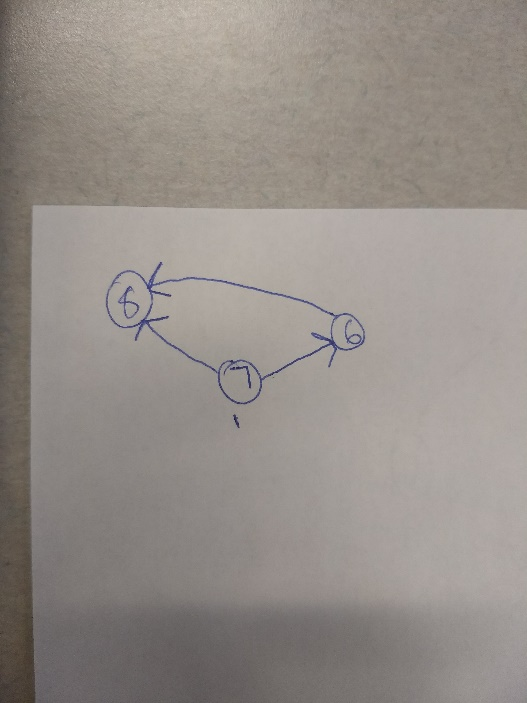 8
6
7